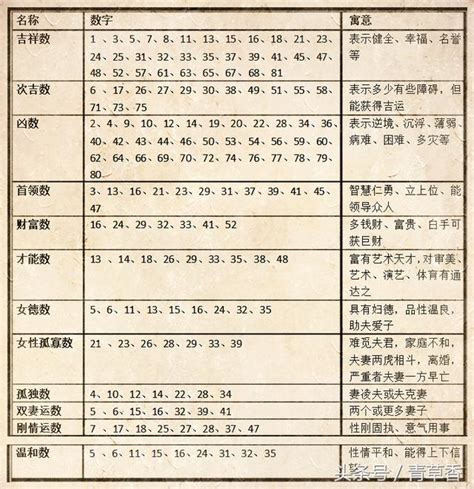 名称 数字 寓意
吉祥数 1、3、5、7、8、11、13、15、16、18、21、23、 表示健全、幸福、名誉
24、25、31、32、33、35、37、39、41、45、47、 等
48、52、57、61、63、65、67、68、81
次吉数 6、17、26、27、29、30、38、49、51、55、58、 表示多少有些障碍，但
71、73、75 能获得吉运
凶数 2、4、9、10、12、14、19、20、22、28、34、36、 表示逆境、沉浮、薄弱、
40、42、43、44、46、50、53、54、56、59、60、 病难、困难、多灾等
62、64、66、69、70、72、74、76、77、78、79、
80
首领数 3、13、16、21、23、29、31、37、39、41、45、 智慧仁勇、立上位、能
47 领导众人
财富数 16、24、29、32、33、41、52 多钱财、富贵、白手可
获巨财
才能数 13、14、18、26、29、33、35、38、48 富有艺术天才，对审美、
艺术、演艺、体育有通
达之
女德数 5、6、11、13、15、16、24、32、35 具有妇德，品性温良，
助夫爱子
女性孤寡数 21、23、26、28、29、33、39 难觅夫君，家庭不和，
夫妻两虎相斗，离婚，
严重者夫妻一方早亡
孤独数 4、10、12、14、22、28、34 妻凌夫或夫克妻
双妻运数 5、6、15、16、32、39、41 两个或更多妻子
刚情运数 7、17、18、25、27、28、37、47 性刚固执、意气用事
温和数 5、6、11、15、16、24、31、32、35 性情平和、能得上下信
头条号 / 青草香